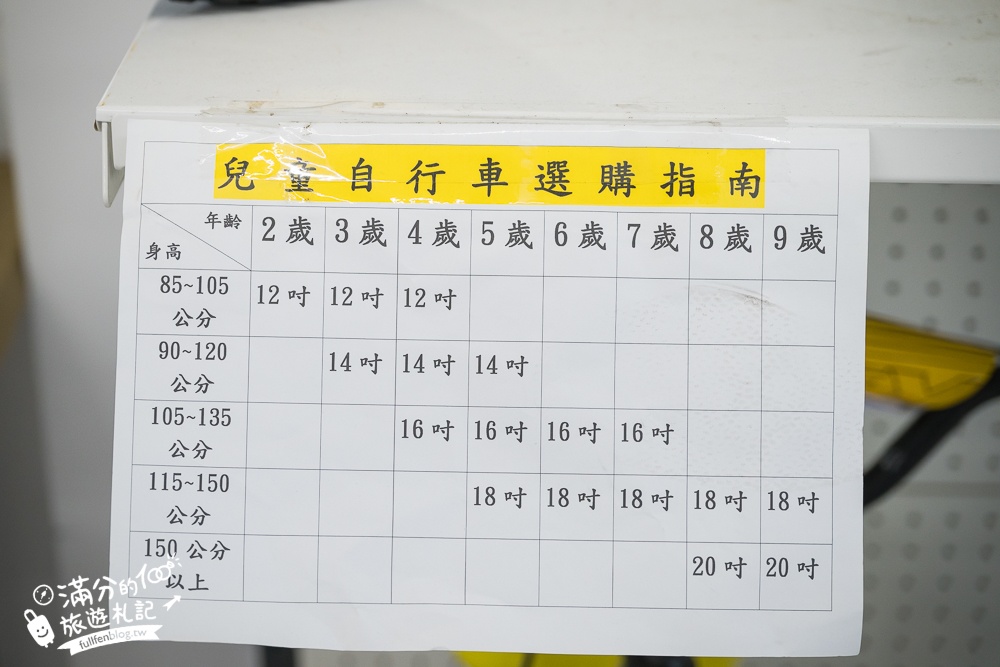 兒童自行車選購指南
年齡 2歲 3歲 4歲 5歲 6歲 7歲 8歲 9歲
身高
85~105 公分 12吋 12吋 12吋
90~120 公分 14吋 14吋 14吋
105~135 公分 16吋 16吋 16吋 16吋
115~150 公分 18吋 18吋 18吋 18吋 18吋
150公分 以上 20吋 20吋
滿分的
旅遊札記
fullfenblog.tw